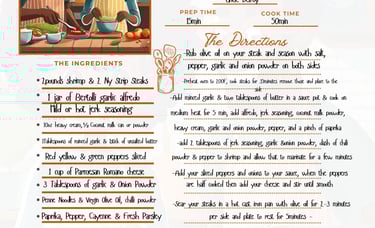 PREP TIME
COOK TIME
15min
50min
The Directions
-Rub olive oil on your steak and season with salt,
pepper, garlic and onion powder on both sides
-Preheat oven to 200F, cook steaks for 20minutes remove them and place to the
side
-Add minced garlic & two tablespoons of butter in a sauce pot & cook on
medium heat for 5 min, add alfredo, jerk seasoning, coconut milk powder,
heavy cream, garlic and onion powder, pepper, and a pinch of paprika
-add 2 tablespoons of jerk seasoning, garlic &onion powder, dash of chili
powder & pepper to shrimp and allow that to marinate for a few minutes
-Add your sliced peppers and onions to your sauce, when the peppers
are half cooked then add your cheese and stir until smooth
-Sear your steaks in a hot cast iron pan with olive oil for 2-3 minutes
per side and plate to rest for 5minutes -
THE INGREDIENTS
2pounds shrimp & 2 Ny Strip Steaks
1 jar of Bertolli garlic alfredo
Mild or hot jerk seasoning
10oz heavy cream,½ Coconut milk can or powder
1Tablespoons of minced garlic & stick of unsalted butter
Red yellow & green peppers sliced
1 cup of Parmesan Romano cheese
3 Tablespoons of garlic & Onion Powder
Penne Noodles & Virgin Olive Oil, chilli powder
Paprika, Pepper, Cayenne & Fresh Parsley